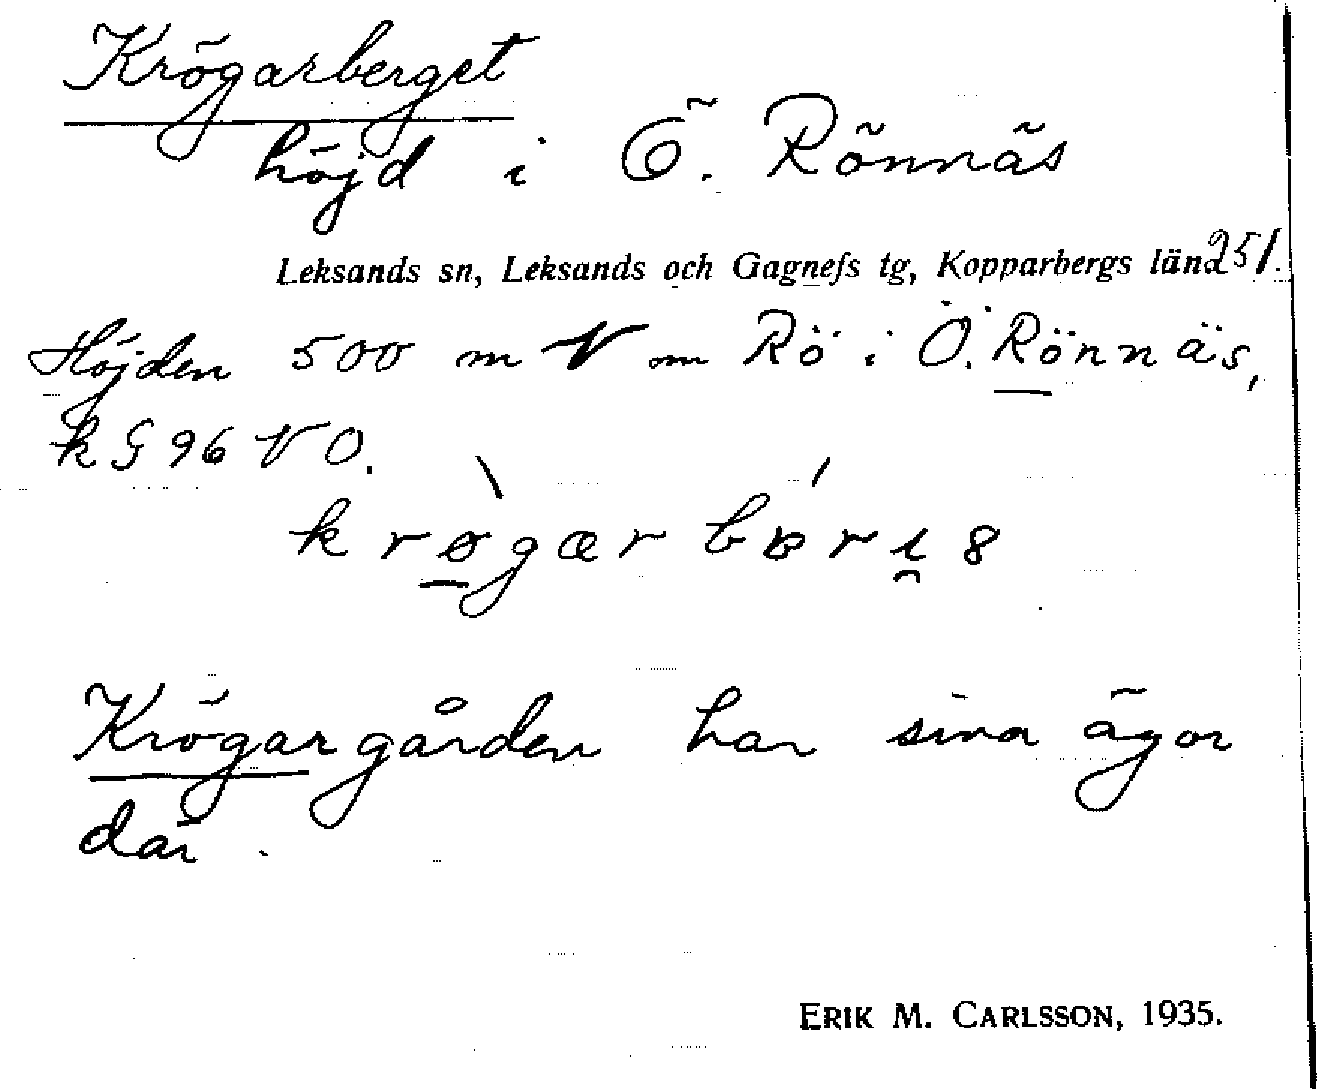 Krögarberget
höjd i Ö. Rönnäs
Leksands sn, Leksands och Gagnefs tg, Kopparbergs län. 251.
Höjden 500 m V om Rö i Ö. Rönnäs,
k G 96 V O.
Krögargården har sina ägor
där.
ERIK M. CARLSSON, 1935.